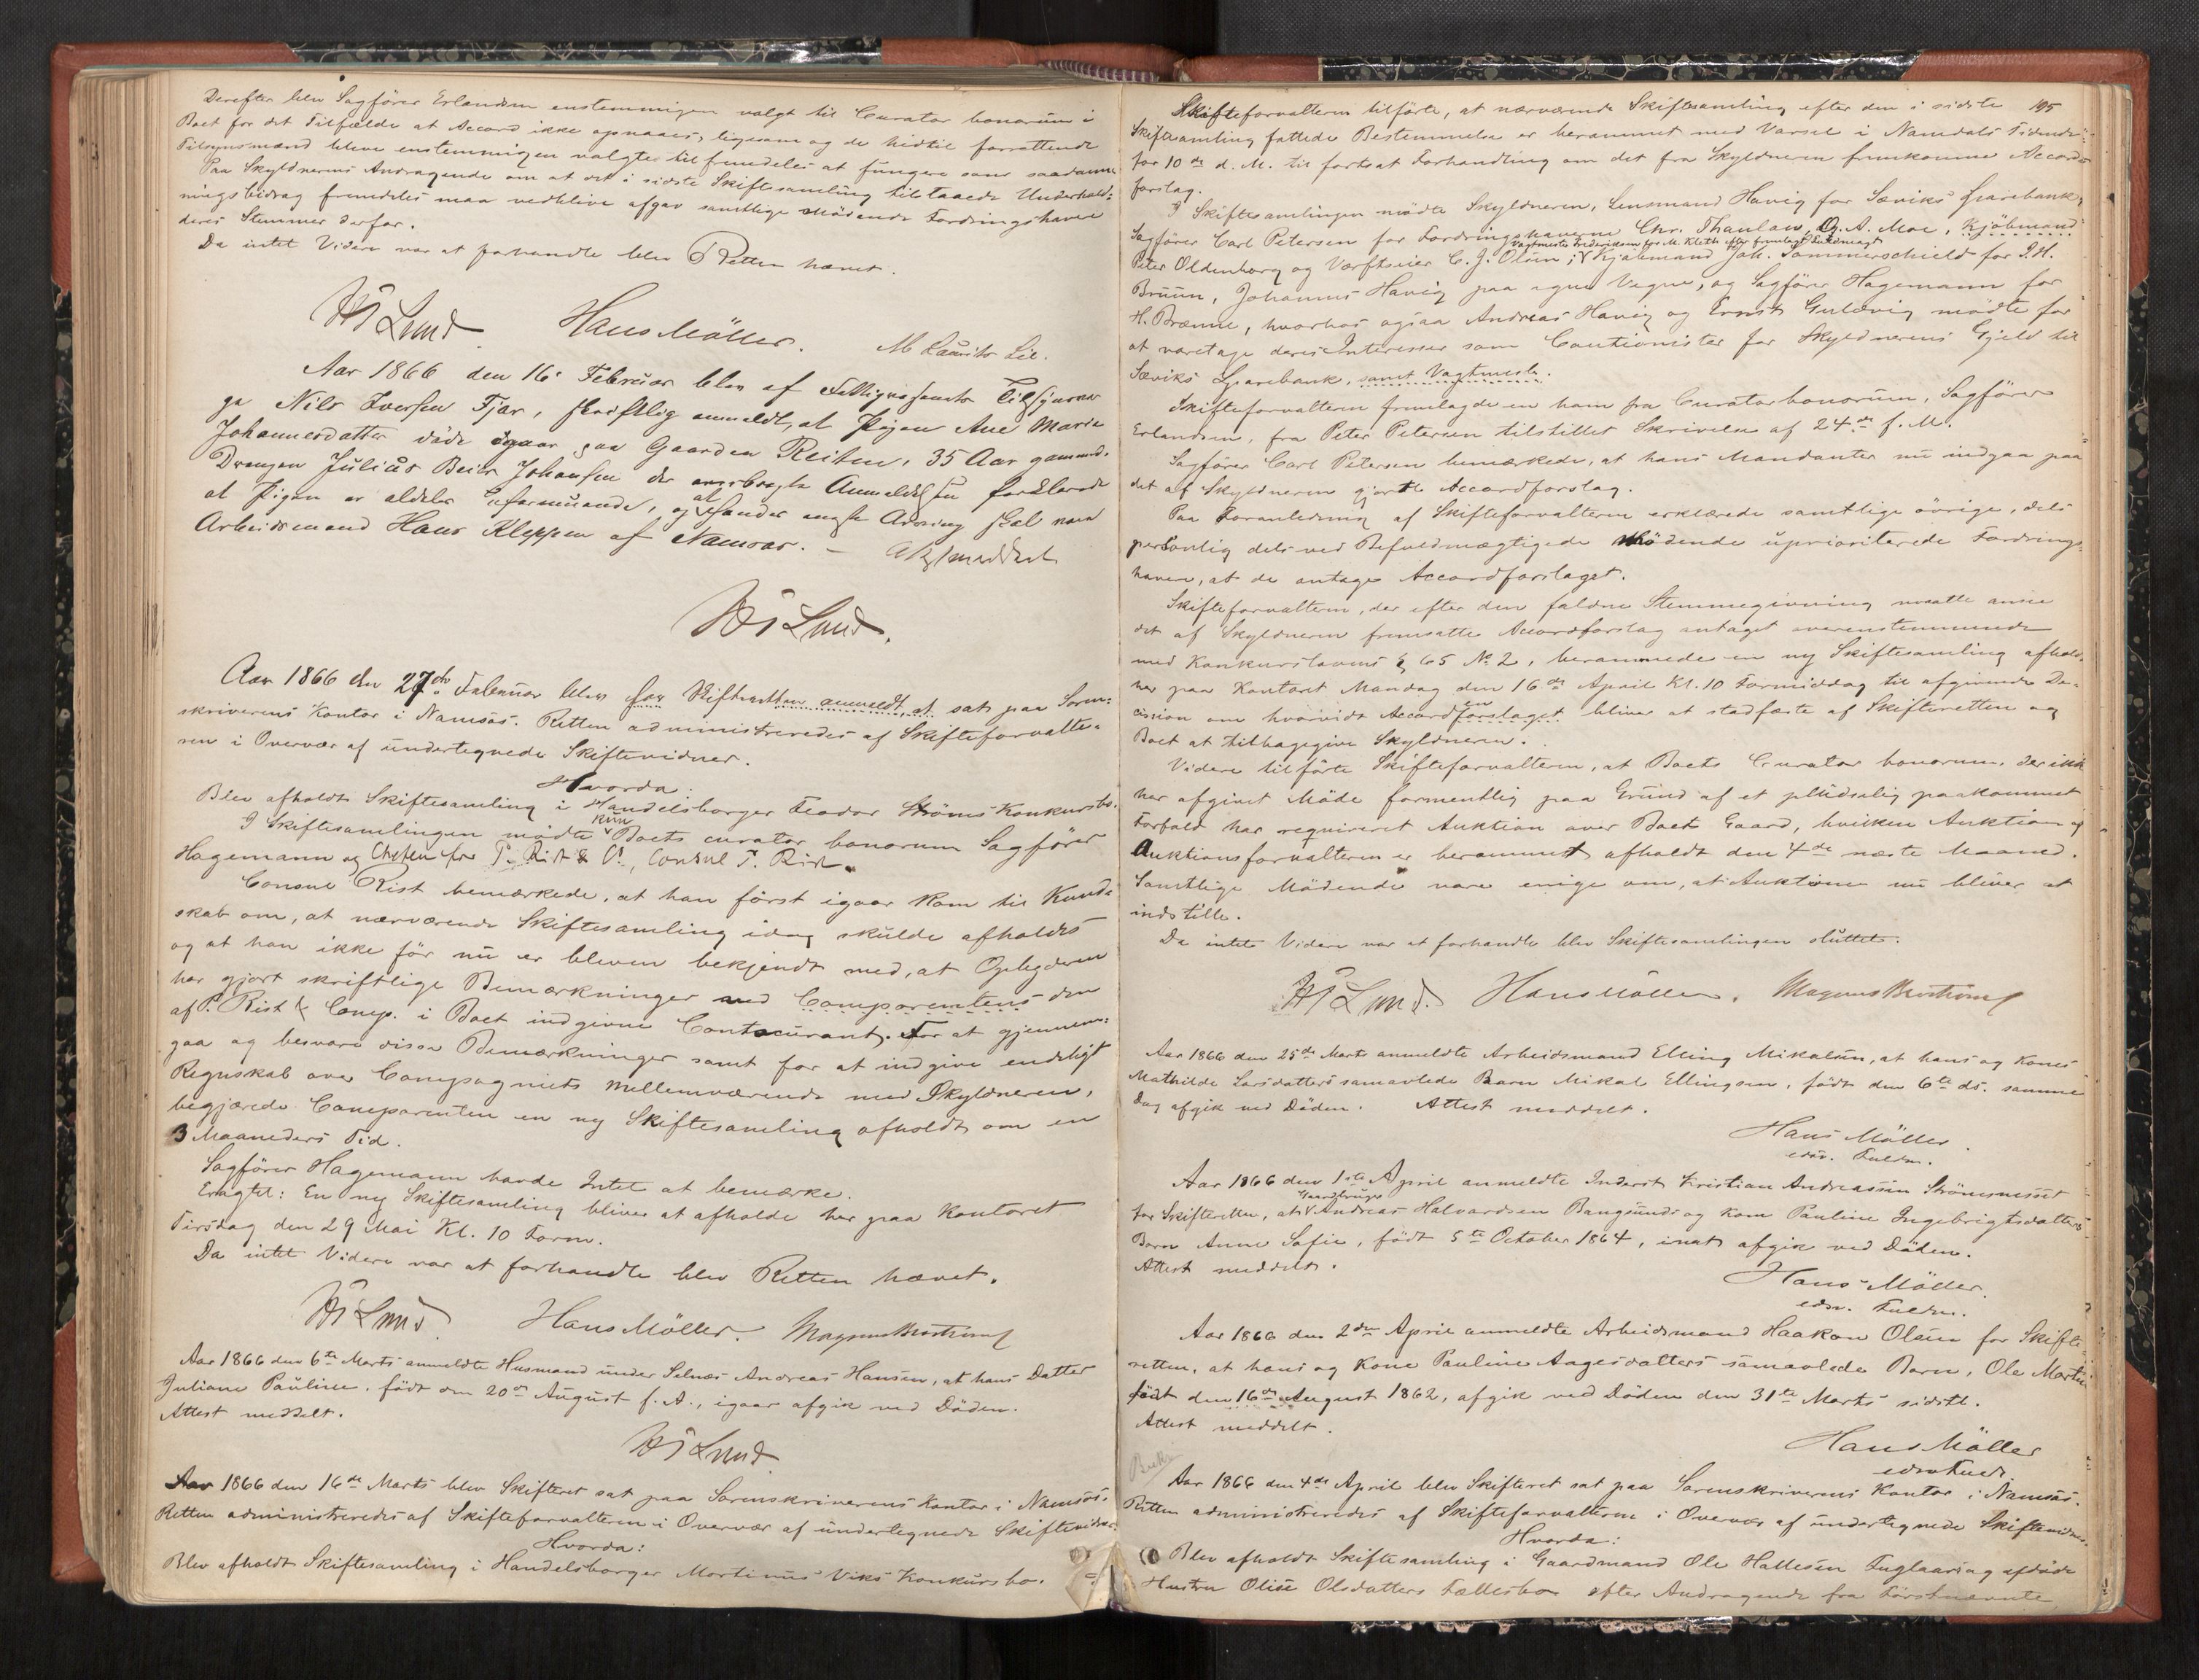 Derefter blev Sagfører Erlandsen enstemmigen valgt til Curator bonorum i
Boet for det Tilfælde at Accord ikke opnaaes, ligesom og de hidtil forrettende
Tilsynsmænd bleve enstemmigen valgte til fremdeles at fungere som saadanne
Paa Skyldnerens Andragende om at det i sidste Skiftesamling tilstaaede Underhold-
ningsbidrag fremdeles maa vedblive afgav samtlige Mødende Fordringshavere
deres Stemmer derfor.
Da intet Videre var at forhandle blev Retten hævet.
Lund Hans Möller. M Laurits Lie.
Aar 1866 den 16. Februar blev af Fattigvæsenets Tilsynsmand
Nils Iversen Fjær, skriftlig anmeldt, at Pigen Ane Marie
Johannesdatter døde igaar paa Gaarden Reiten, 35 Aar gammel.
Drengen Julius Beier Johansen der Anmeldelsen forklarede
at Pigen er aldeles uformuende, og at hendes Arving skal være
Arbeidsmand Hans Kleppen af Namsos. –
Lund.
Aar 1866 den 27de Februar blev Skifteretten sat paa Soren-
skriverens Kontor i Namsos. Retten administreredes af Skifteforvalte-
ren i Overvær af undertegnede Skiftevidner.
Hvorda:
Blev afholdt Skiftesamling i Handelsborger Teodor Strøms Konkursbo.
I Skiftesamlingen mødte kun Boets curator bonorum Sagfører
Hagemann og Chefen for P. Rist & Co, Consul P. Rist.
Consul Rist bemærkede, at han først igaar kom til Kund-
skab om, at nærværende Skiftesamling idag skulde afholdes
og at han ikke før nu er bleven bekjendt med, at Opbyderen
har gjort skriftlige Bemærkninger ved Comparentens den
af P. Rist & Comp. i Boet indgivne Contocurant. For at gjennem-
gaa og besvare disse Bemærkninger samt for at indgive endeligt
Regnskab over Compagniets Mellemværende med Skyldneren,
begjærede Comparenten en ny Skiftesamling afholdt om en
3 Maaneders Tid.
Sagfører Hagemann havde Intet at bemærke.
Eragtet: En ny Skiftesamling bliver at afholde her paa Kontoret
Tirsdag den 29 Mai Kl. 10 Form.
Da intet Videre var at forhandle blev Retten hævet.
Lund. Hans Möller. Magnus
Aar 1866 den 6te Marts anmeldte Husmand under Selnæs Andreas Hansen, at hans Datter
Juliane Pauline, født den 20de August f. A., igaar afgik ved Døden.
Attest meddelt.
Lund
Aar 1866 den 16de Marts blev Skifteret sat paa Sorenskriverens Kontor i Namsos.
Retten administreredes af Skifteforvalteren i Overvær af undertegnede Skiftevidner.
Hvorda:
Blev afholdt Skiftesamling i Handelsborger Martinus Viks Konkursbo.
Skifteforvalteren tilførte, at nærværende Skiftesamling efter den i sidste 195
Skiftesamling fattede Bestemmelse er berammet med Varsel i Namdals Tidende
for 10de d. M. til fortsat Forhandling om det fra Skyldneren fremkomne Accords-
forslag.
I Skiftesamlingen mødte Skyldneren, Lensmand Havig for Sæviks Sparebank,
Sagfører Carl Petersen for Fordringshaverne Chr. Thaulow, O. A. Moe, Kjøbmand
Vagtmester Frederiksen for M. Kleth efter fremlagt Fuldmagt
Peter Oldenborg og Værftseier C. J. Olsen, Kjøbmand Joh. Sommerschield for P. H.
Bruun, Johannes Havig paa egne Vegne, og Sagfører Hagemann for
H. Brænne, hvorhos ogsaa Andreas Havig og Ernst Gulsvig mødte for
at varetage deres Interesser som Cautionister for Skyldnerens Gjeld til
Sæviks Sparebank, samt Vagtmester.
Skifteforvalteren fremlagde en ham fra Curator bonorum, Sagfører
Erlandsen, fra Peter Petersen tilstillet Skrivelse af 24de f. M.
Sagfører Carl Petersen bemærkede, at hans Mandanter nu indgaa paa
det af Skyldneren gjorte Accordforslag.
Paa Foranledning af Skifteforvalteren erklærede samtlige øvrige, dels
personlig dels ved Befuldmægtigede Mødende uprioriterede Fordrings-
havere, at de antage Accordforslaget.
Skifteforvalteren, der efter den faldne Stemmegivning maatte anse
det af Skyldneren fremsatte Accordforslag antaget overensstemmende
med Konkurslovens § 65 No 2, berammede en ny Skiftesamling afhol-
her paa Kontoret Mandag den 16de April Kl. 10 Formiddag til afgivende De-
cision om hvorvidt Accorden forslaget bliver at stadfæste af Skifteretten og
Boet at tilbagegive Skyldneren.
Videre tilførte Skifteforvalteren, at Boets Curator bonorum, der ikke
har afgivet Møde formentlig paa Grund af et pludselig paakommet
Forfald har requireret Auktion over Boets Gaard, hvilken Auktion af
Auktionsforvalteren er berammet afholdt den 4de næste Maaned.
Samtlige Mødende vare enige om, at Auktionen nu bliver at
indstille.
Da intet Videre var at forhandle blev Skiftesamlingen sluttet.
Lund. Hans Möller. Magnus
Aar 1866 den 25de Marts anmeldte Arbeidsmand Elling Mikalsen, at hans og Kones
Mathilde Larsdatters samavlede Barn Mikal Ellingsen, født den 6te ds. samme
Dag afgik ved Døden. Attest meddelt.
Hans Möller
edsv. Fuldm.
Aar 1866 den 1ste April anmeldte Inderst Kristian Andreassen Strømsnesset
Gaardbruger
for Skifteretten, at Andreas Halvardsen Bangsund og Kone Pauline Ingebrigtsdatters
Barn Anne Sofie, født 5te October 1864, inat afgik ved Døden.
Attest meddelt.
Hans Möller.
edsv. Fuldm.
Aar 1866 den 2den April anmeldte Arbeidsmand Haakon Olsen for Skifte-
retten, at hans og Kone Pauline Aagesdatters samavlede Barn, Ole Martin
født den 16de August 1862, afgik ved Døden den 31te Marts sidstl.
Attest meddelt.
Hans Möller
edsv Fuldm.
Aar 1866 den 4de April blev Skifteret sat paa Sorenskriverens Kontor i Namsos.
Retten administreredes af Skifteforvalteren i Overvær af undertegnede Skiftevidner.
Hvorda:
Blev afholdt Skiftesamling i Gaardmand Ole Hallesen Fuglaar og afdøde
Hustru Olise Olsdatters Fællesbo efter Andragende fra Førstnævnte